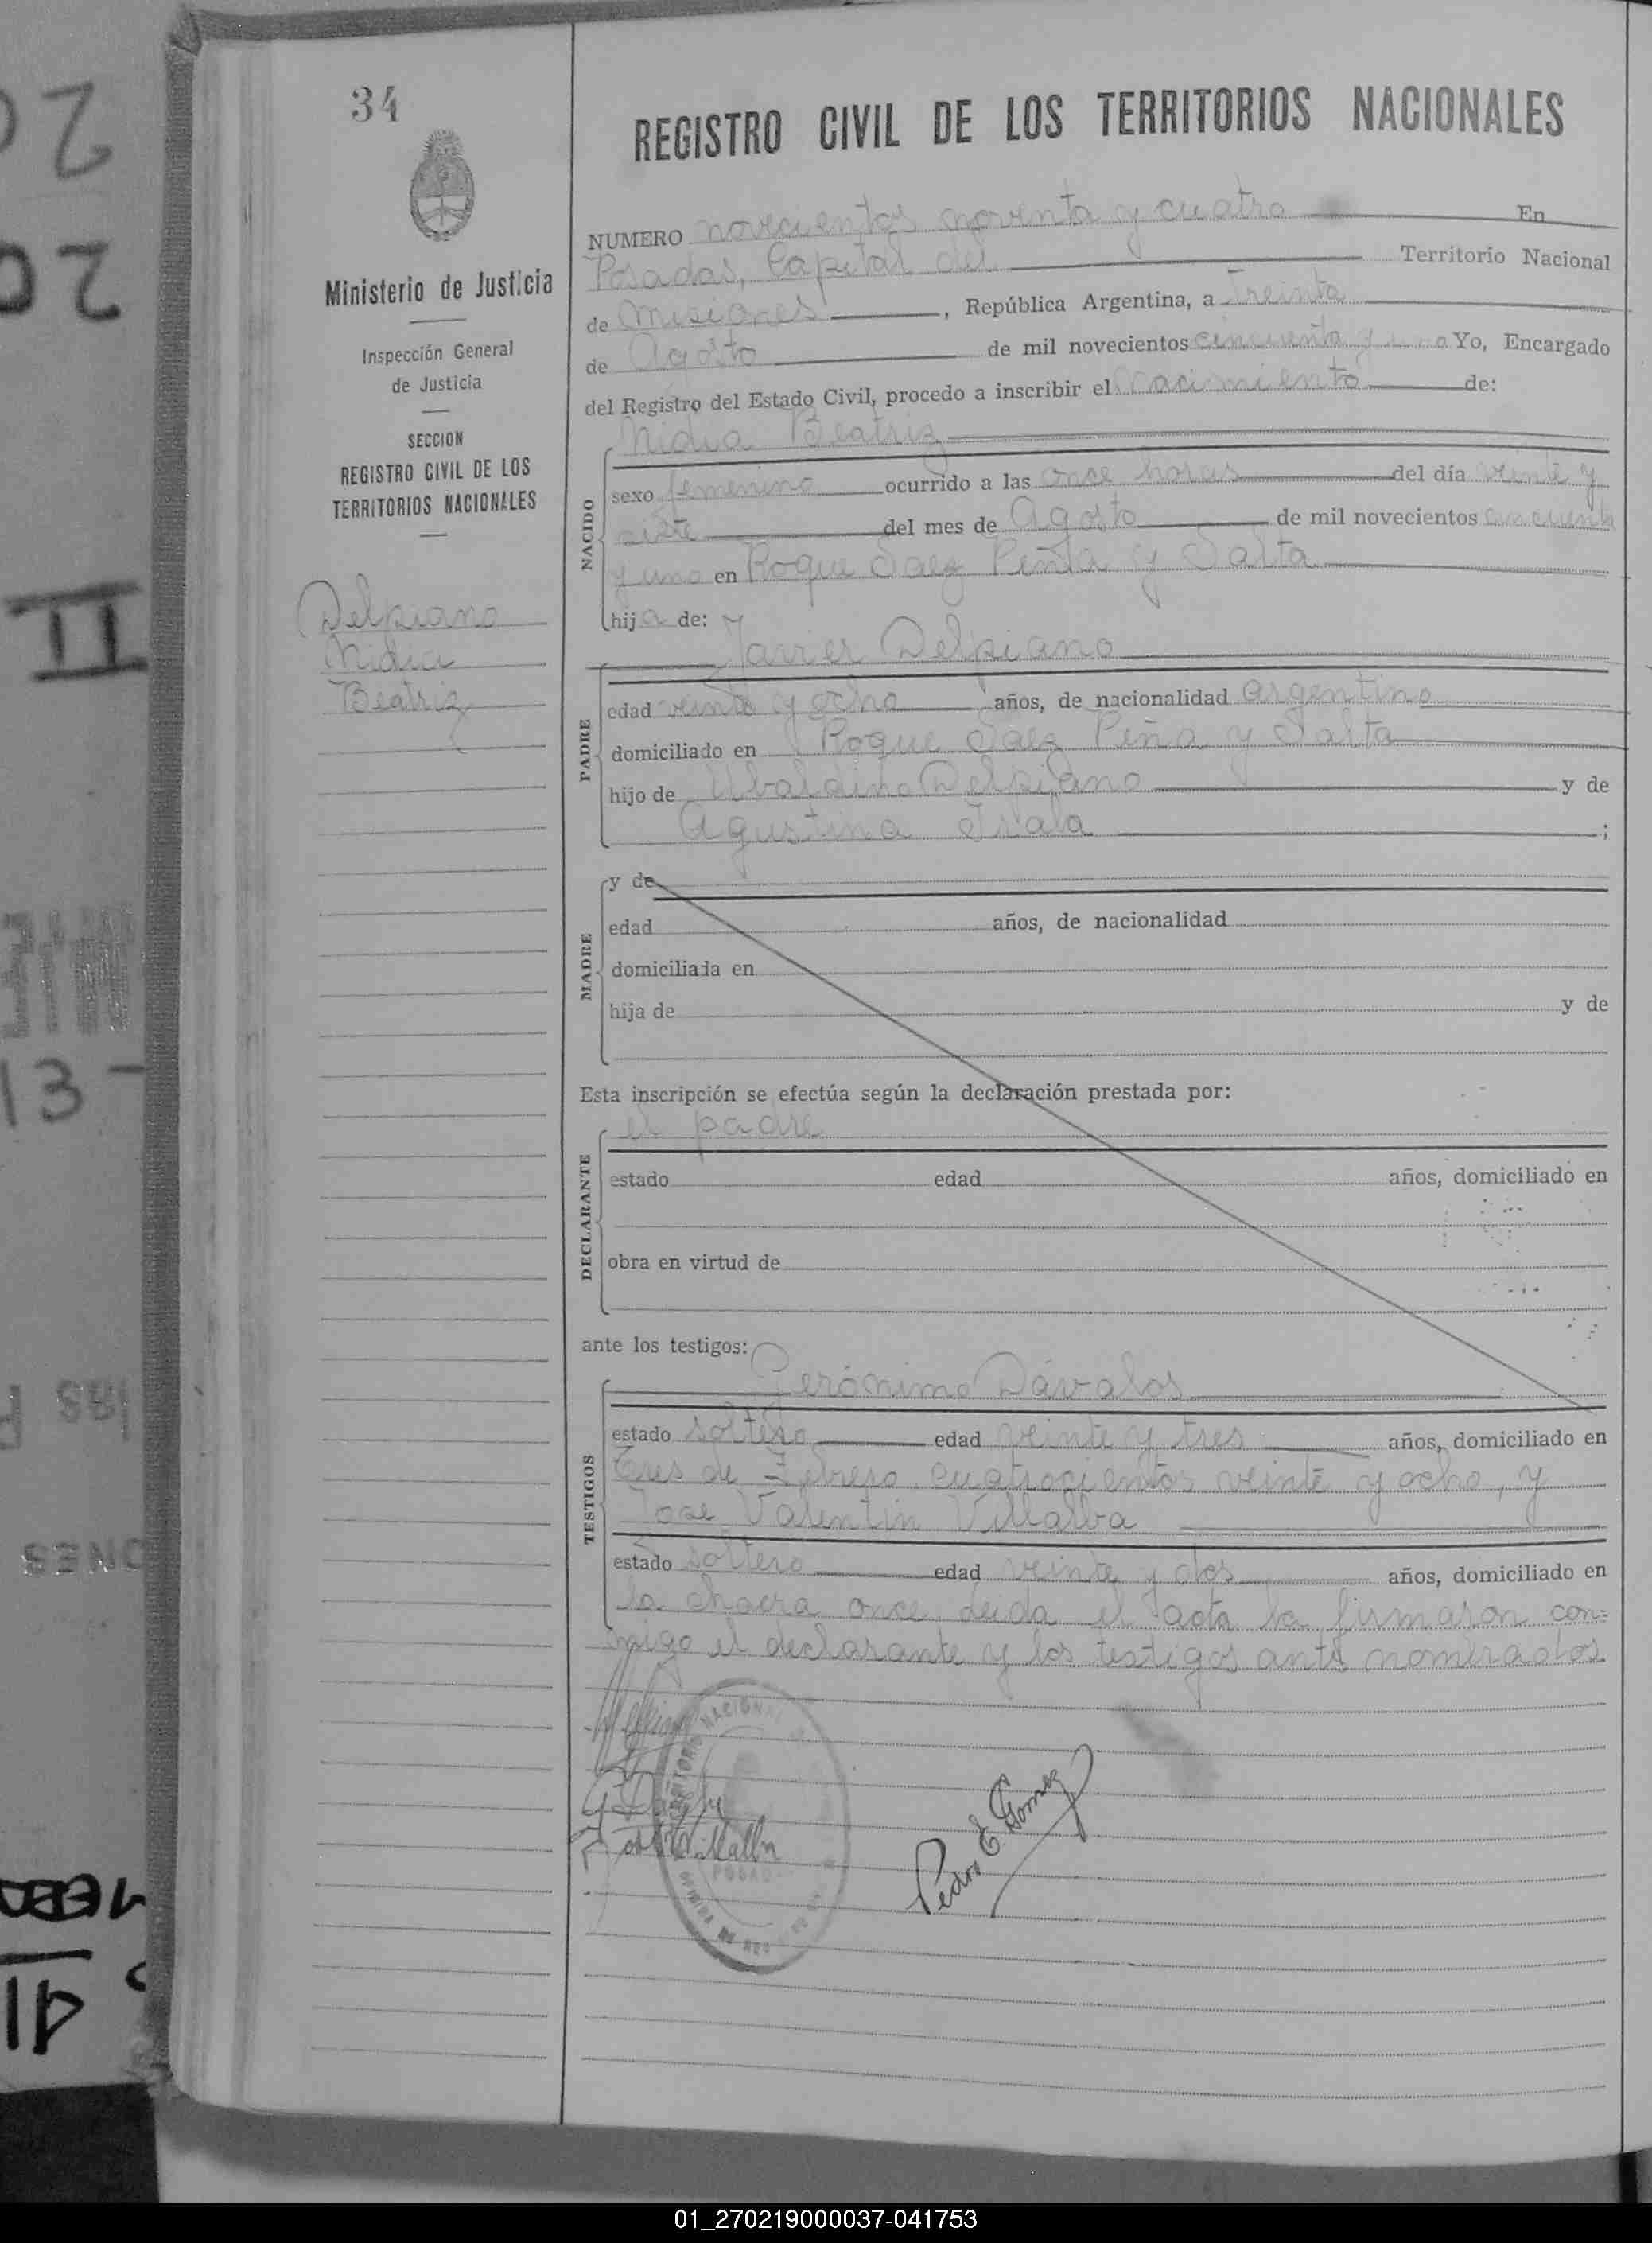 34
REGISTRO CIVIL DE LOS TERRITORIOS NACIONALES
Ministerio de Justicia
Inspección General
de Justicia
SECCION
REGISTRO CIVIL DE LOS
TERRITORIOS NACIONALES
Delpiano
Nidia
Beatriz
NUMERO novecientos noventa y cuatro En
Posadas, Capital del Territorio Nacional
de Misiones, República Argentina, a Treinta
de Agosto de mil novecientos cincuenta y uno Yo, Encargado
del Registro del Estado Civil, procedo a inscribir el nacimiento de:
Nidia Beatriz
NACIDO
sexo femenino ocurrido a las once horas del día veinte y
siete del mes de Agosto de mil novecientos cincuenta
y uno en Roque Saez Peña y Salta
hija de:
Javier Delpiano
PADRE
edad veinte y ocho años, de nacionalidad argentino
domiciliado en Roque Saez Peña y Salta
hijo de Ubaldino Delpiano y de
Agustina Irala ;
MADRE
y de
edad años, de nacionalidad
domiciliada en
hija de y de
Esta inscripción se efectúa según la declaración prestada por:
el padre
DECLARANTE
estado edad años, domiciliado en
obra en virtud de
ante los testigos:
Gerónimo Dávalos
TESTIGOS
estado soltero edad veinte y tres años, domiciliado en
Tres de Febrero cuatrocientos veinte y ocho, y
Jose Valentin Villalba
estado soltero edad veinte y dos años, domiciliado en
la chacra once. Leida el acta la firmaron con=
migo el declarante y los testigos ante nombrados.
NACIONAL
Villalba
Pedro E. Gomez
01_270219000037-041753